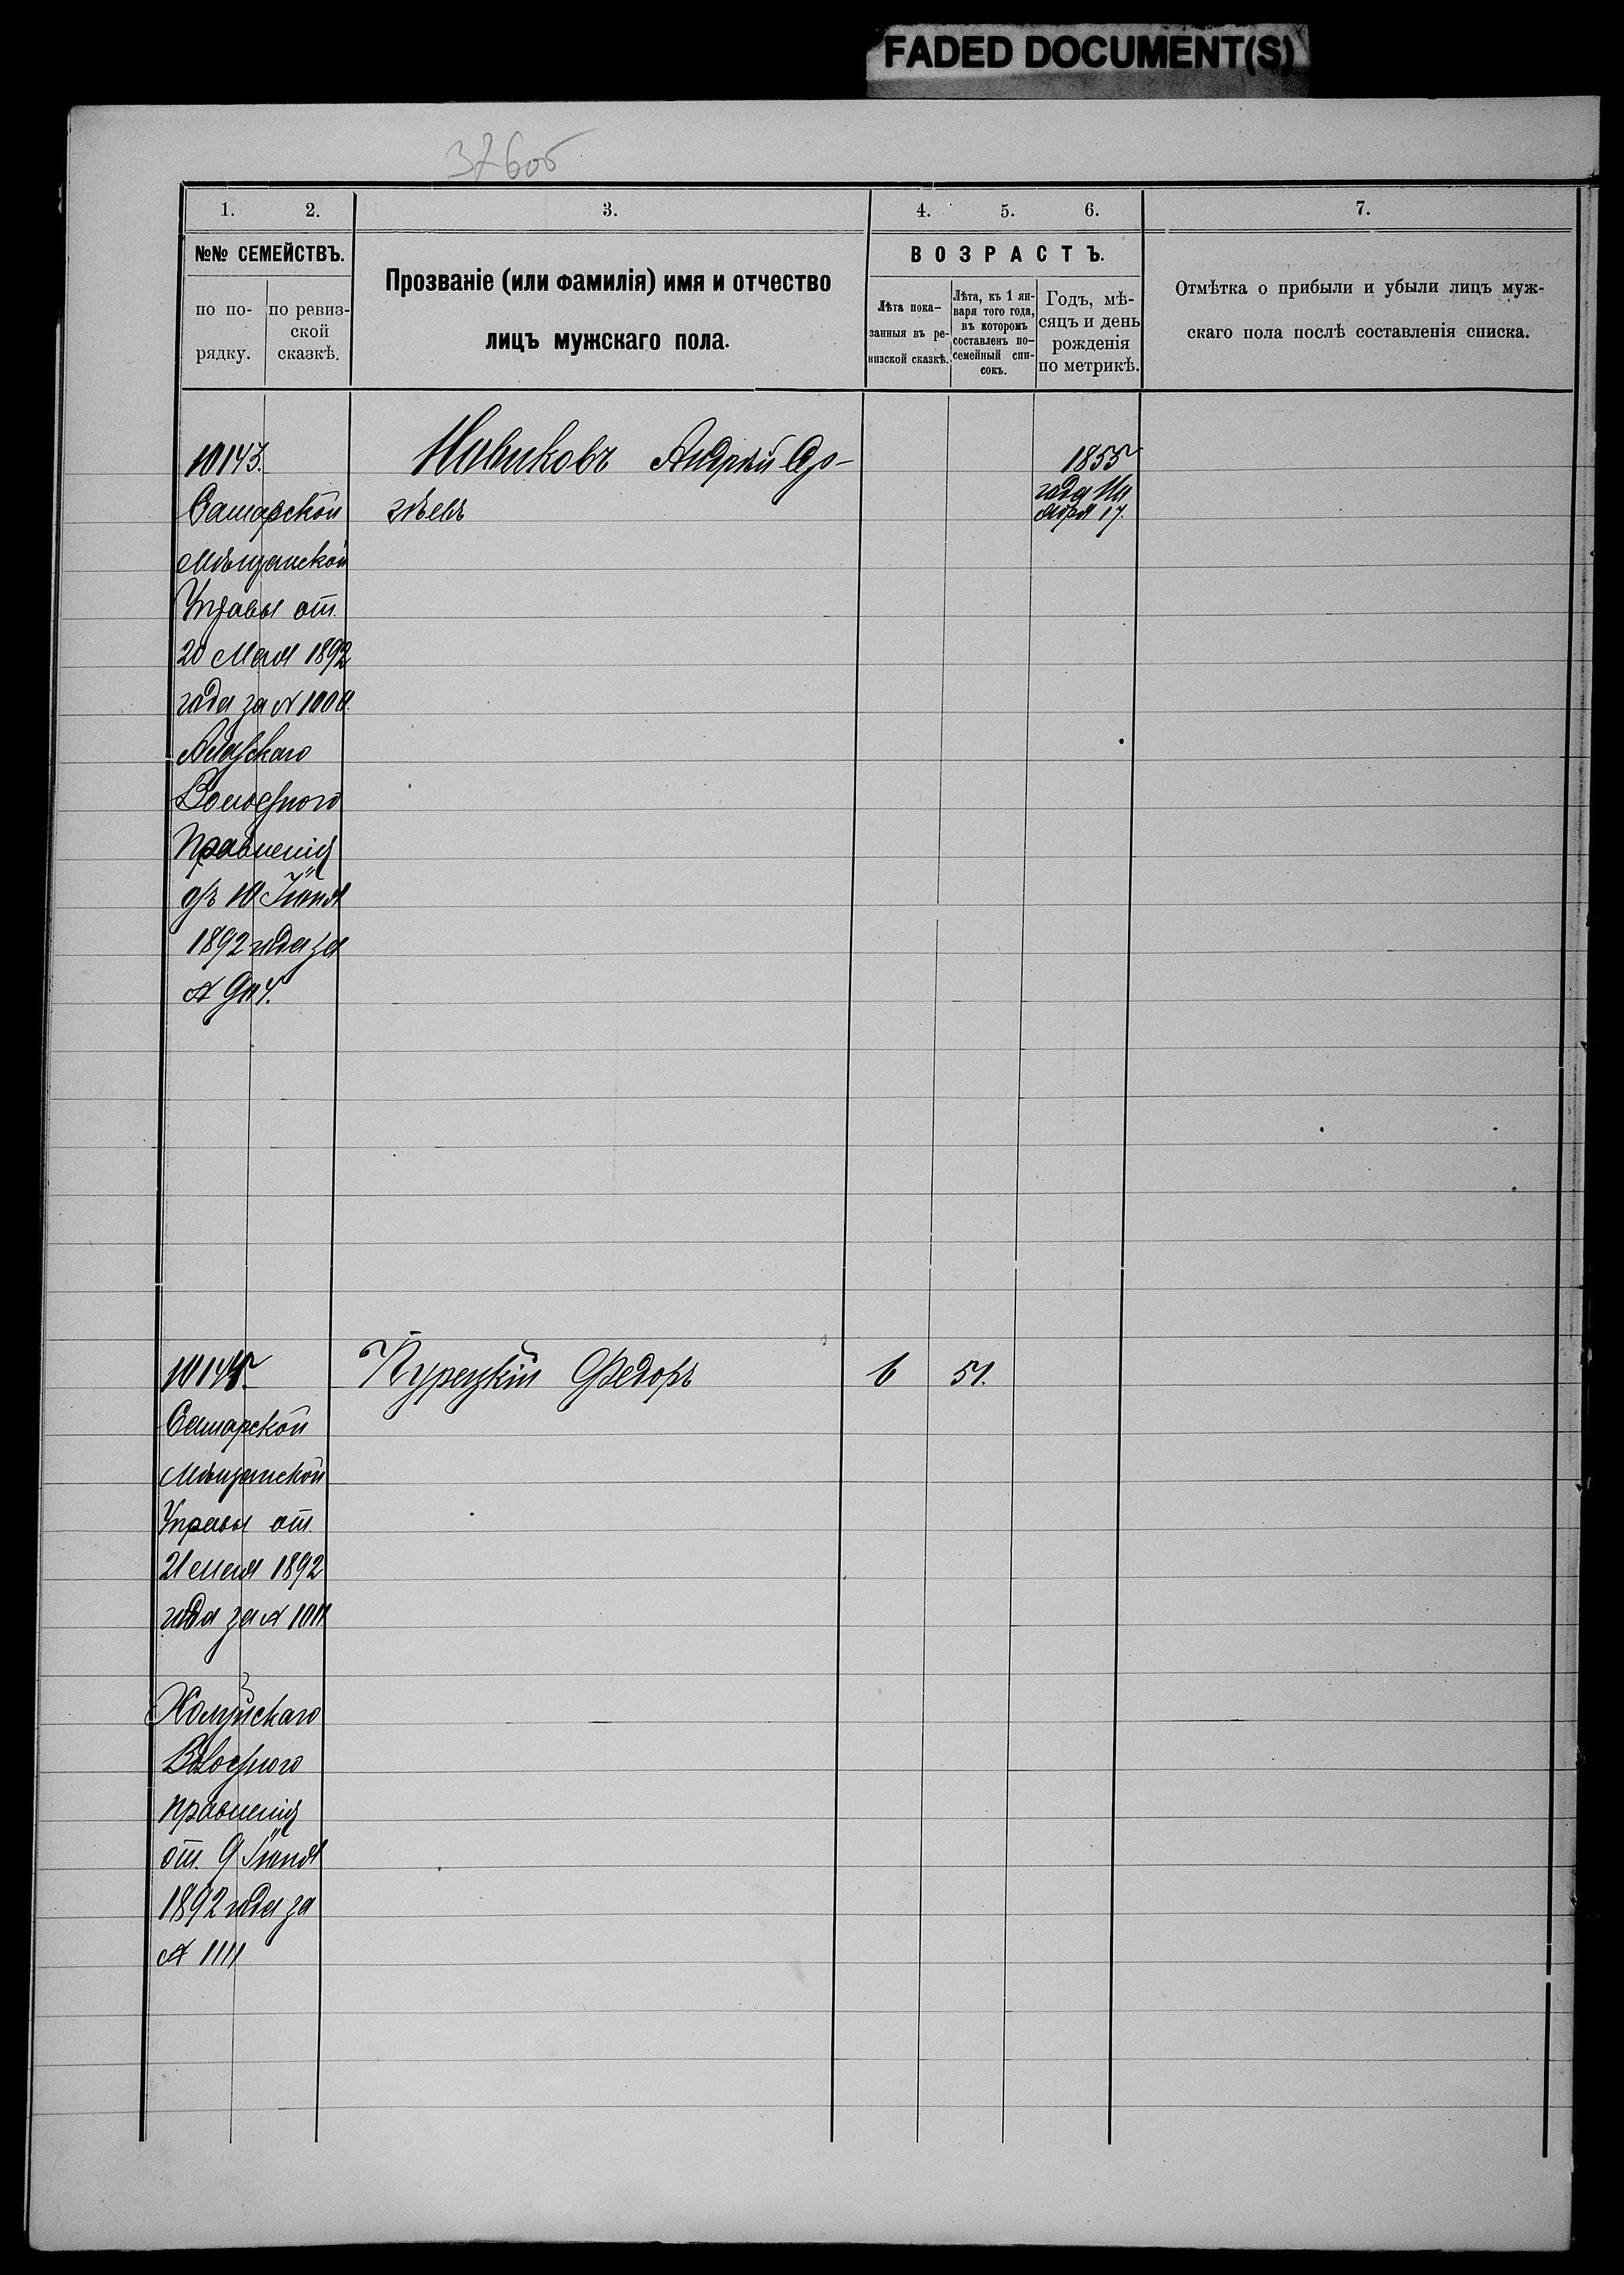 FADED DOCUMENT(S)
376об
1. 2. 3. 4. 5. 6. 7.
№№ СЕМЕЙСТВЪ.
по по-
рядку.
по ревиз-
ской
сказкѣ.
Прозваніе (или фамилія) имя и отчество
лицъ мужскаго пола.
ВОЗРАСТЪ.
Лѣта пока-
занныя въ ре-
визской сказкѣ.
Лѣта, къ 1 ян-
варя того года,
въ которомъ
составленъ по-
семейный спи-
сокъ.
Годъ, мѣ-
сяцъ и день
рожденія
по метрикѣ.
Отмѣтка о прибыли и убыли лицъ муж-
скаго пола послѣ составленія списка.
10143.
Самарской
Мѣщанской
Управы от.
20 Мая 1892
года за №
Волостного
Правленія
отъ 10 Іюня
1892 года за
№
Новиковъ Андрей Ар-
1855
года
ября 17.
Самарской
Мѣщанской
Управы от.
21 Мая 1892
года за №
Холуйскаго
Волостного
правленія
от. 9 Іюня
1892 года за
№ 1111
Курецкій Федоръ
6 51.